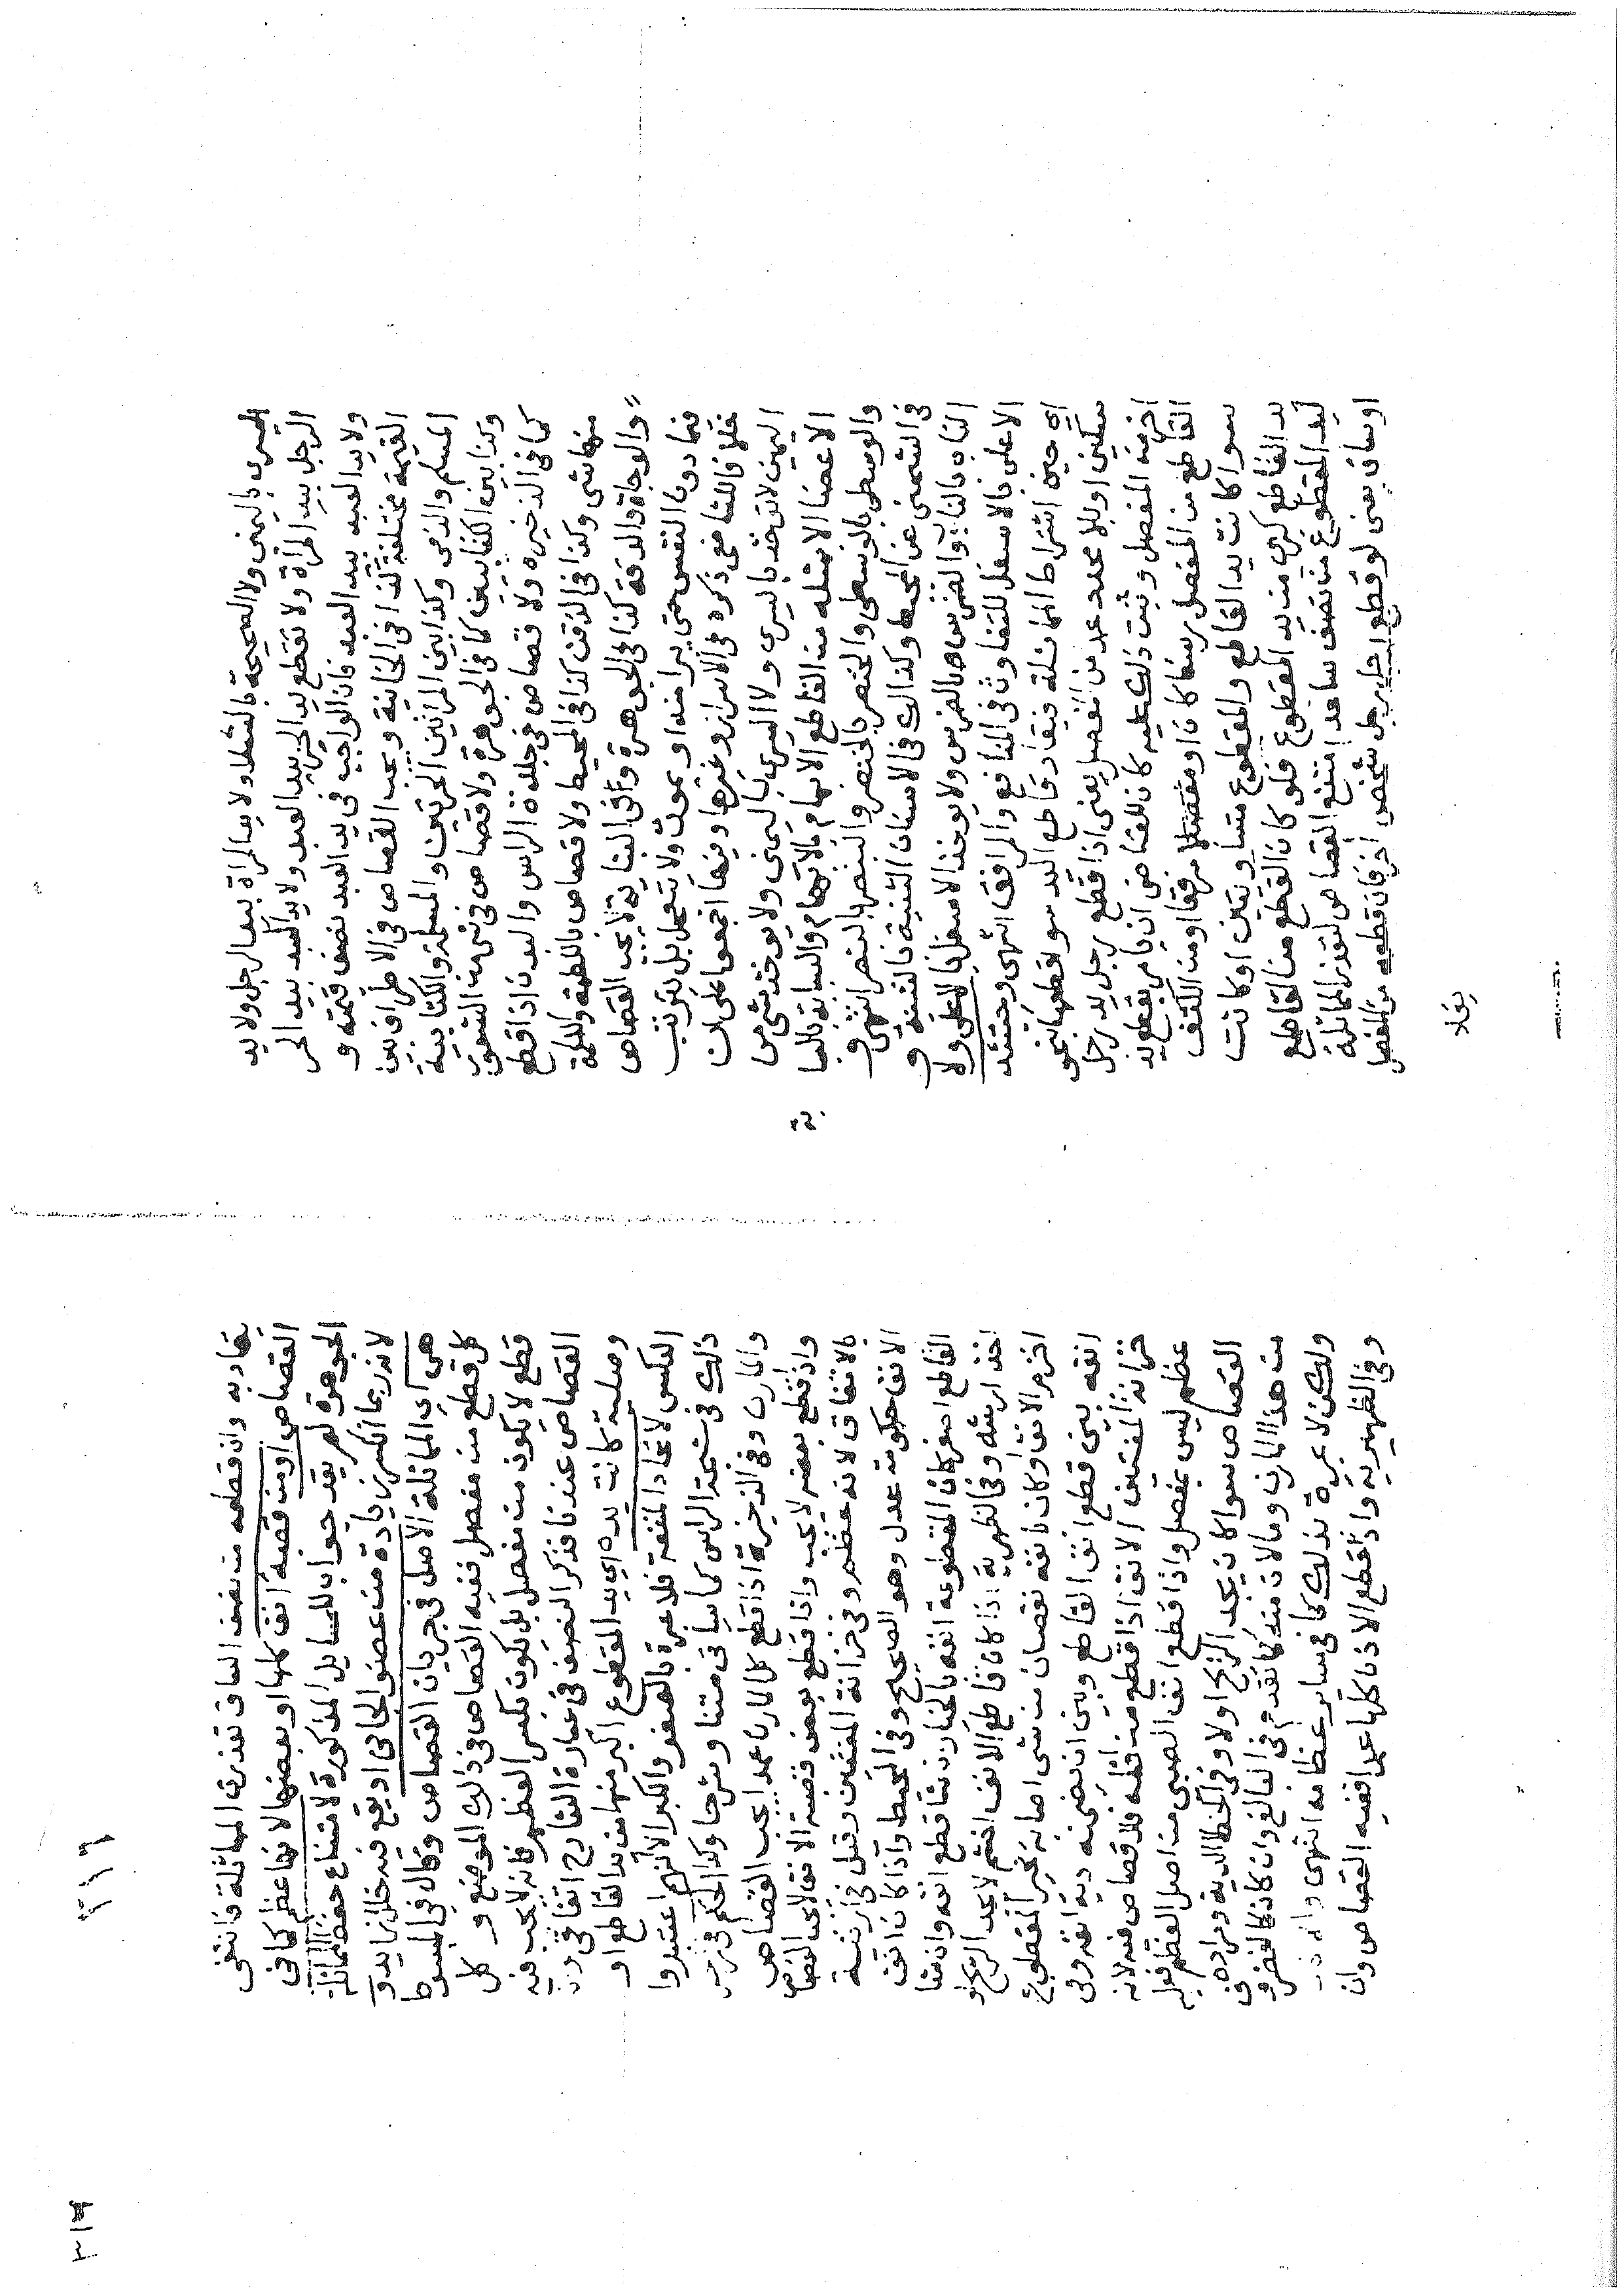 اليسرى باليمنى ولا الصحيحة بالشلا ولا يد المراة بيد الرجل ولا يد
الرجل بيد المرأة ولا تقطع يد الحر بيد العبد ولا يد العبد بيد الحر
ولا يد العبد بيد العبد فان الواجب في يد العبد نصف قيمته و
القيمة مختلفة كذا في الخانية ويجب القصاص في الاطراف بين
المسلم والذمي وكذا بين المراتين الحرتين والمسلمة والكتابية
وكذا بين الكتابيين كما في الجوهرة ولا قصاص في شي من الشعور
كما في الذخيره ولا قصاص في جلدة الراس والبدن اذا قطع
منها شي وكذا في الذقن كذا في المحيط ولا قصاص باللطمة واللكمة
والوجاة والدقة كذا في الجوهرة وفي البناية لا يجب القصاص
فيما دون النفس حتى يبرا منه او يموت ولا يتعجل بل يترقب
خلافا للشافعي ذكره في الاسرار وغيرها وفيها اجمعوا على ان
اليمين لا تؤخذ باليسرى ولا اليسرى باليمنى ولا يؤخذ شي من
الاعضا الا بمثله من القاطع الابهام بالابهام والسبابة بالسبا
بة
والوسطى بالوسطى والخنصر بالخنصر والبنصر بالبنصر انتهى و
في الشمني عن المحيط وكذالك في الاسنان الثنية بالثنية و
الناب بالناب والضرس بالضرس ولا يوخذ الاسفل بالاعلى ولا
الاعلى بالاسفل للتفاوت في المنافع والمرافق انتهى وحينئذ
اي حين اشتراط المماثلة فيقاد قاطع اليد سوا قطعها بنحو
سكين او بلا محدد عمدا من المفصل يعني اذا قطع رجل يد رجل
اخر من المفصل وثبت ذلك عليه كان للقاضي ان يامر بقطع يد
القاطع من المفصل رسغا كان او مفصلا مرفقا او من الكتف
سوا كانت يد القاطع والمقطوع متساويتين او كانت
يد القاطع كبرى من يد المقطوع فلو كان القطع من القاطع
ليد المقطوع من نصف ساعد امتنع القصاص لتعذر المماثلة
او ساق يعني لو قطع رجل رجل شخص اخر فان قطعه من المفصل
يقاد
يقاد به وان قطعه من نصف الساق تعذرت المماثلة فانتفى
القصاص او من قصبة انف كلها او بعضها لانها عظم كما في
الجوهرة لم يقد جواب للمسايل المذكورة لامتناع حفظ المماثلة
لانه ربما انكسر زيادة من عضو الجاني او يقع فيه خلل زايد و
هي اي المماثلة الاصل في جريان القصاص وقال في المبسوط
كل قطع من مفصل ففيه القصاص في ذلك الموضع وكل
قطع لا يكون من مفصل بل يكون بكسر العظم فانه لا يجب فيه
القصاص عندنا فذكر النصف في عبارة الشارح اتفاقي
وصلية كانت يده اي يد المقطوع اكبر منها من يد القاطع او
العكس لاتحاد المنفعة فلا عبرة بالصغر والكبر الا انهم اعتبروا
ذلك في شجة الراس كما سياتي متنا وشرحا وكذا الحكم في رجل
والمارن وفي الذخيرة اذا قطع كل المارن عمدا يجب القصاص
واذا قطع بعضه لا يجب واذا قطع بعض قصبة الانف لا يجب القصاص
بالاتفاق لانه عظم وفي خزانة المفتين وقيل في ارنبة
الانف حكومة عدل وهو الصحيح وفي المحيط واذا كان انف
القاطع اصغر كان المقطوعة انفه بالخيار ان شا قطع انفه وان شا
اخذ ارشه وفي الظهيرية اذا كان قاطع الانف اخشم لا يجد الريح او
اخرم الانف او كان بانفه نقصان من شي اصابه يخير المقطوع
انفه بين قطع انف القاطع وبين ان يضمنه دية انفه وفي
خزانة المفتين الانف اذا قطع من اصله فلا قصاص فيه لانه
عظم ليس بمفصل واذا قطع انف الصبي من اصل العظم فعليه
القصاص سوا كان يجد الريح او لا وفي الخطا الدية ومراده في
من هذا المارن وما لان منه كما تقدم في البالغ وان كان كالغضروف
ولكن لا عبرة بذلك كما في ساير عظامه انتهى
وفي الظهيرية واذا قطع الاذن كلها عمدا ففيه القصاص وان
٢١٦
٣١٤